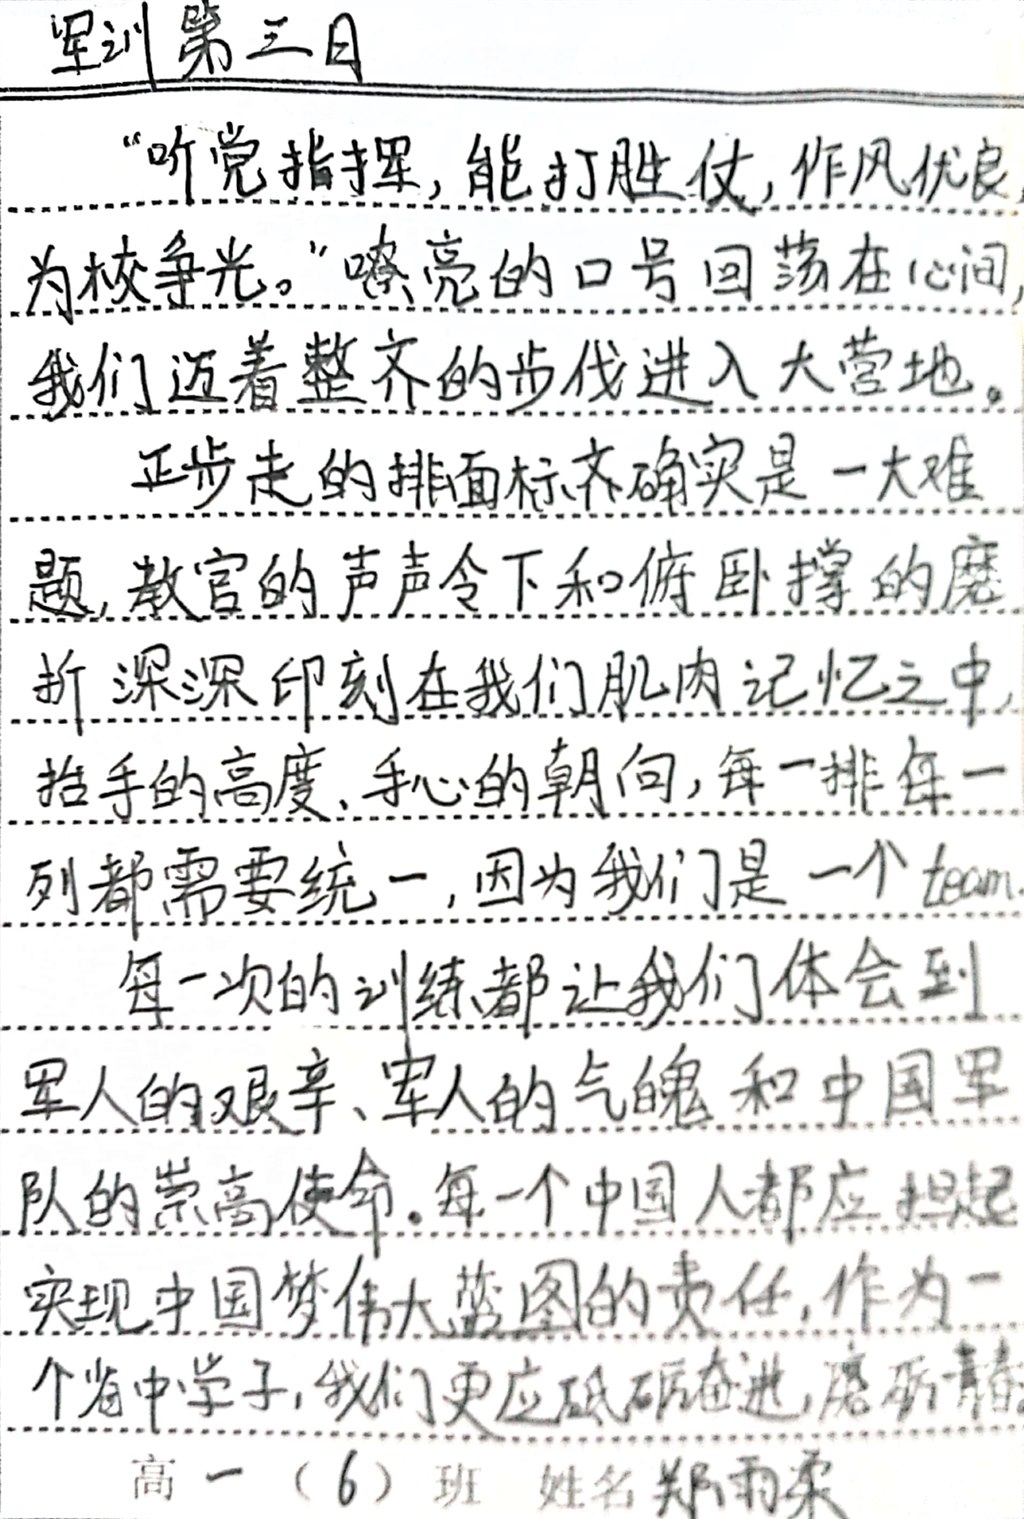 军训第三日
“听党指挥，能打胜仗，作风优良，
为校争光。”嘹亮的口号回荡在心间，
我们迈着整齐的步伐进入大营地。
正步走的排面标齐确实是一大难
题，教官的声声令下和俯卧撑的磨
折深深印刻在我们肌肉记忆之中，
抬手的高度、手心的朝向，每一排每一
列都需要统一，因为我们是一个team.
每一次的训练都让我们体会到
军人的艰辛、军人的气魄和中国军
队的崇高使命。每一个中国人都应担起
实现中国梦伟大蓝图的责任，作为一
个省中学子，我们更应砥砺奋进，磨砺青春。
高一（6）班 姓名郑雨柔